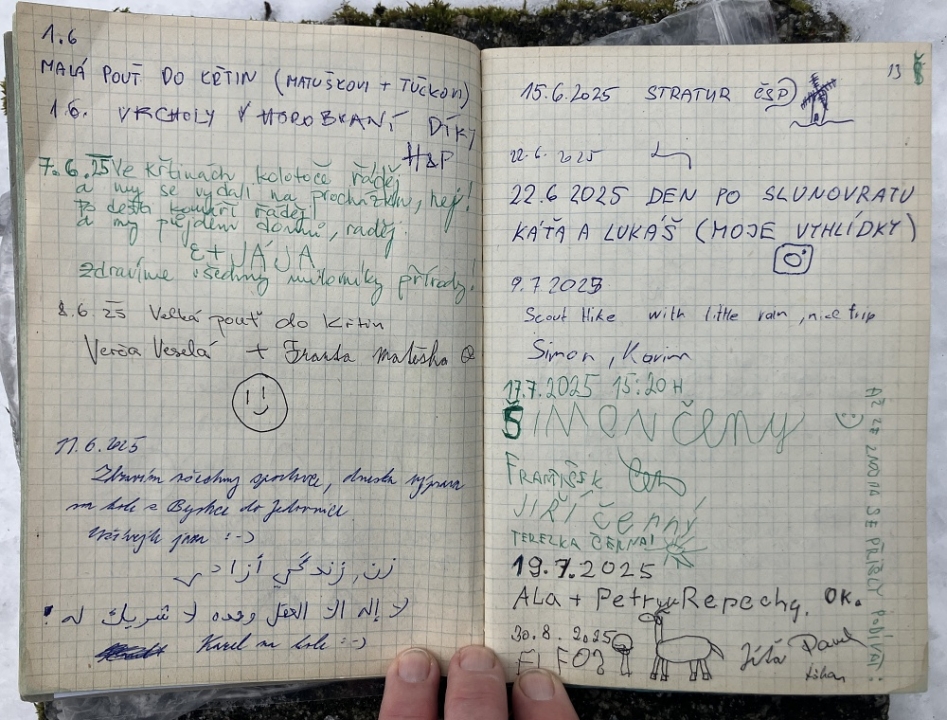 1.6
MALÁ POUŤ DO KŘTIN (MATUŠKOVI + TUČKOVI)
1.6. VRCHOLY V HOROBRANÍ DÍKY
H&P
7.6.25 Ve Křtinách kolotoče řáděj
a my se vydali na procházku, hej!
Po dešti kouří řáděj
a my půjdem domů, raděj.
E + JÁJA
Zdravíme všechny milovníky přírody!
8.6 25 Velká pouť do Křtin
Verča Veselá + Franta Matěška
11.6.2025
Zdravím všechny sportovce, dneska výprava
na kole z Bystrce do Jedovnice
:-)
زن زندگی آزادی
لا إله الا العقل وحده لا شريك له
Karel na kole :-)
13
15.6.2025 STRATUR ČSP
22.6. 2025
22.6 2025 DEN PO SLUNOVRATU
KÁŤA A LUKÁŠ (MOJE VYHLÍDKY)
9.7.2025
Scout Hike with little rain, nice trip
Simon, Karim
17.7.2025 15:20 H
ŠIMON Černý
FRANTIŠEK
JIŘÍ černý
TEREZKA ČERNÁ!
AŽ ZE ZNOJMA SE PŘIJELY PODÍVAT:
19.7.2025
Ala + Petr Repechy. OK.
30.8.2025
Jitá Pavel